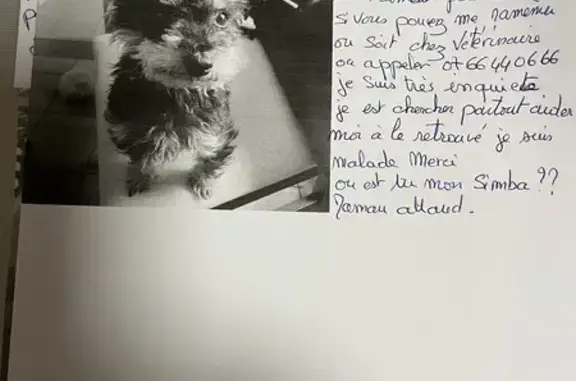 si vous pouvez me ramener
ou soit chez Vétérinaire
ou appeler 07 66 44 06 66
je suis très inquiete
je est chercher partout aider
moi à le retrouvé je suis
malade Merci
ou est tu mon Simba ??
Maman attend.